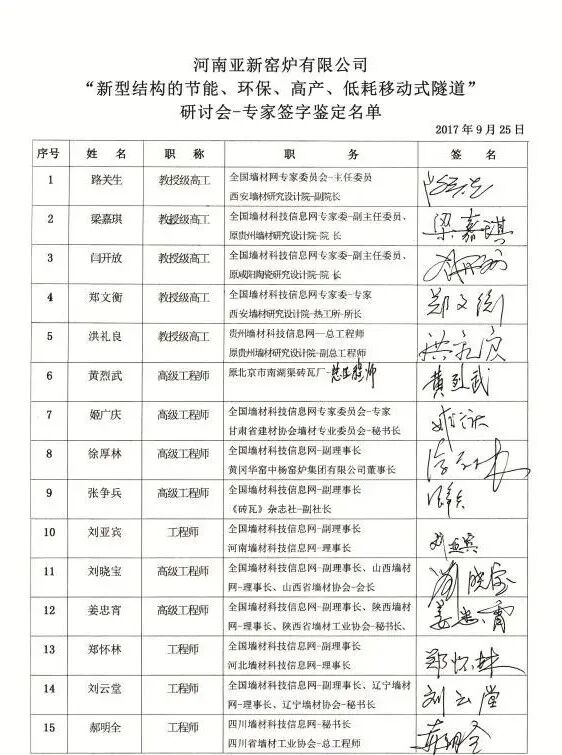 河南亚新窑炉有限公司
“新型结构的节能、环保、高产、低耗移动式隧道”
研讨会-专家签字鉴定名单
2017年9月25日
序号 姓 名 职 称 职 务 签 名
1 路关生 教授级高工 全国墙材网专家委员会-主任委员
西安墙材研究设计院-副院长
2 梁嘉琪 教授级高工 全国墙材科技信息网专家委-副主任委员、 梁嘉琪
原贵州墙材研究设计院-院 长
3 闫开放 教授级高工 全国墙材科技信息网专家委-副主任委员、
原咸阳陶瓷研究设计院-院 长
4 郑文衡 教授级高工 全国墙材科技信息网专家委-专家 郑文衡
西安墙材研究设计院-热工所-所长
5 洪礼良 教授级高工 贵州墙材科技信息网—总工程师
原贵州墙材研究设计院-副总工程师
6 黄烈武 高级工程师 原北京市南湖渠砖瓦厂-总工程师 黄烈武
7 姬广庆 高级工程师 全国墙材科技信息网专家委员会-专家
甘肃省建材协会墙材专业委员会-秘书长
8 徐厚林 高级工程师 全国墙材科技信息网-副理事长
黄冈华窑中杨窑炉集团有限公司董事长
9 张争兵 高级工程师 全国墙材科技信息网-副理事长
《砖瓦》杂志社-副社长
10 刘亚宾 工程师 全国墙材科技信息网-副理事长 刘亚宾
河南墙材科技信息网-理事长
11 刘晓宝 高级工程师 全国墙材科技信息网-副理事长、山西墙材 刘晓宝
网-理事长、山西省墙材协会-会长
12 姜忠宵 高级工程师 全国墙材科技信息网-副理事长、陕西墙材 姜忠霄
网-理事长、陕西省墙材工业协会-秘书长、
13 郑怀林 工程师 全国墙材科技信息网-副理事长 郑怀林
河北墙材科技信息网-理事长
14 刘云堂 工程师 全国墙材科技信息网-副理事长、辽宁墙材 刘云堂
网-理事长、辽宁墙材协会-秘书长
15 郝明全 工程师 四川墙材科技信息网-秘书长 郝明全
四川省墙材工业协会-总工程师